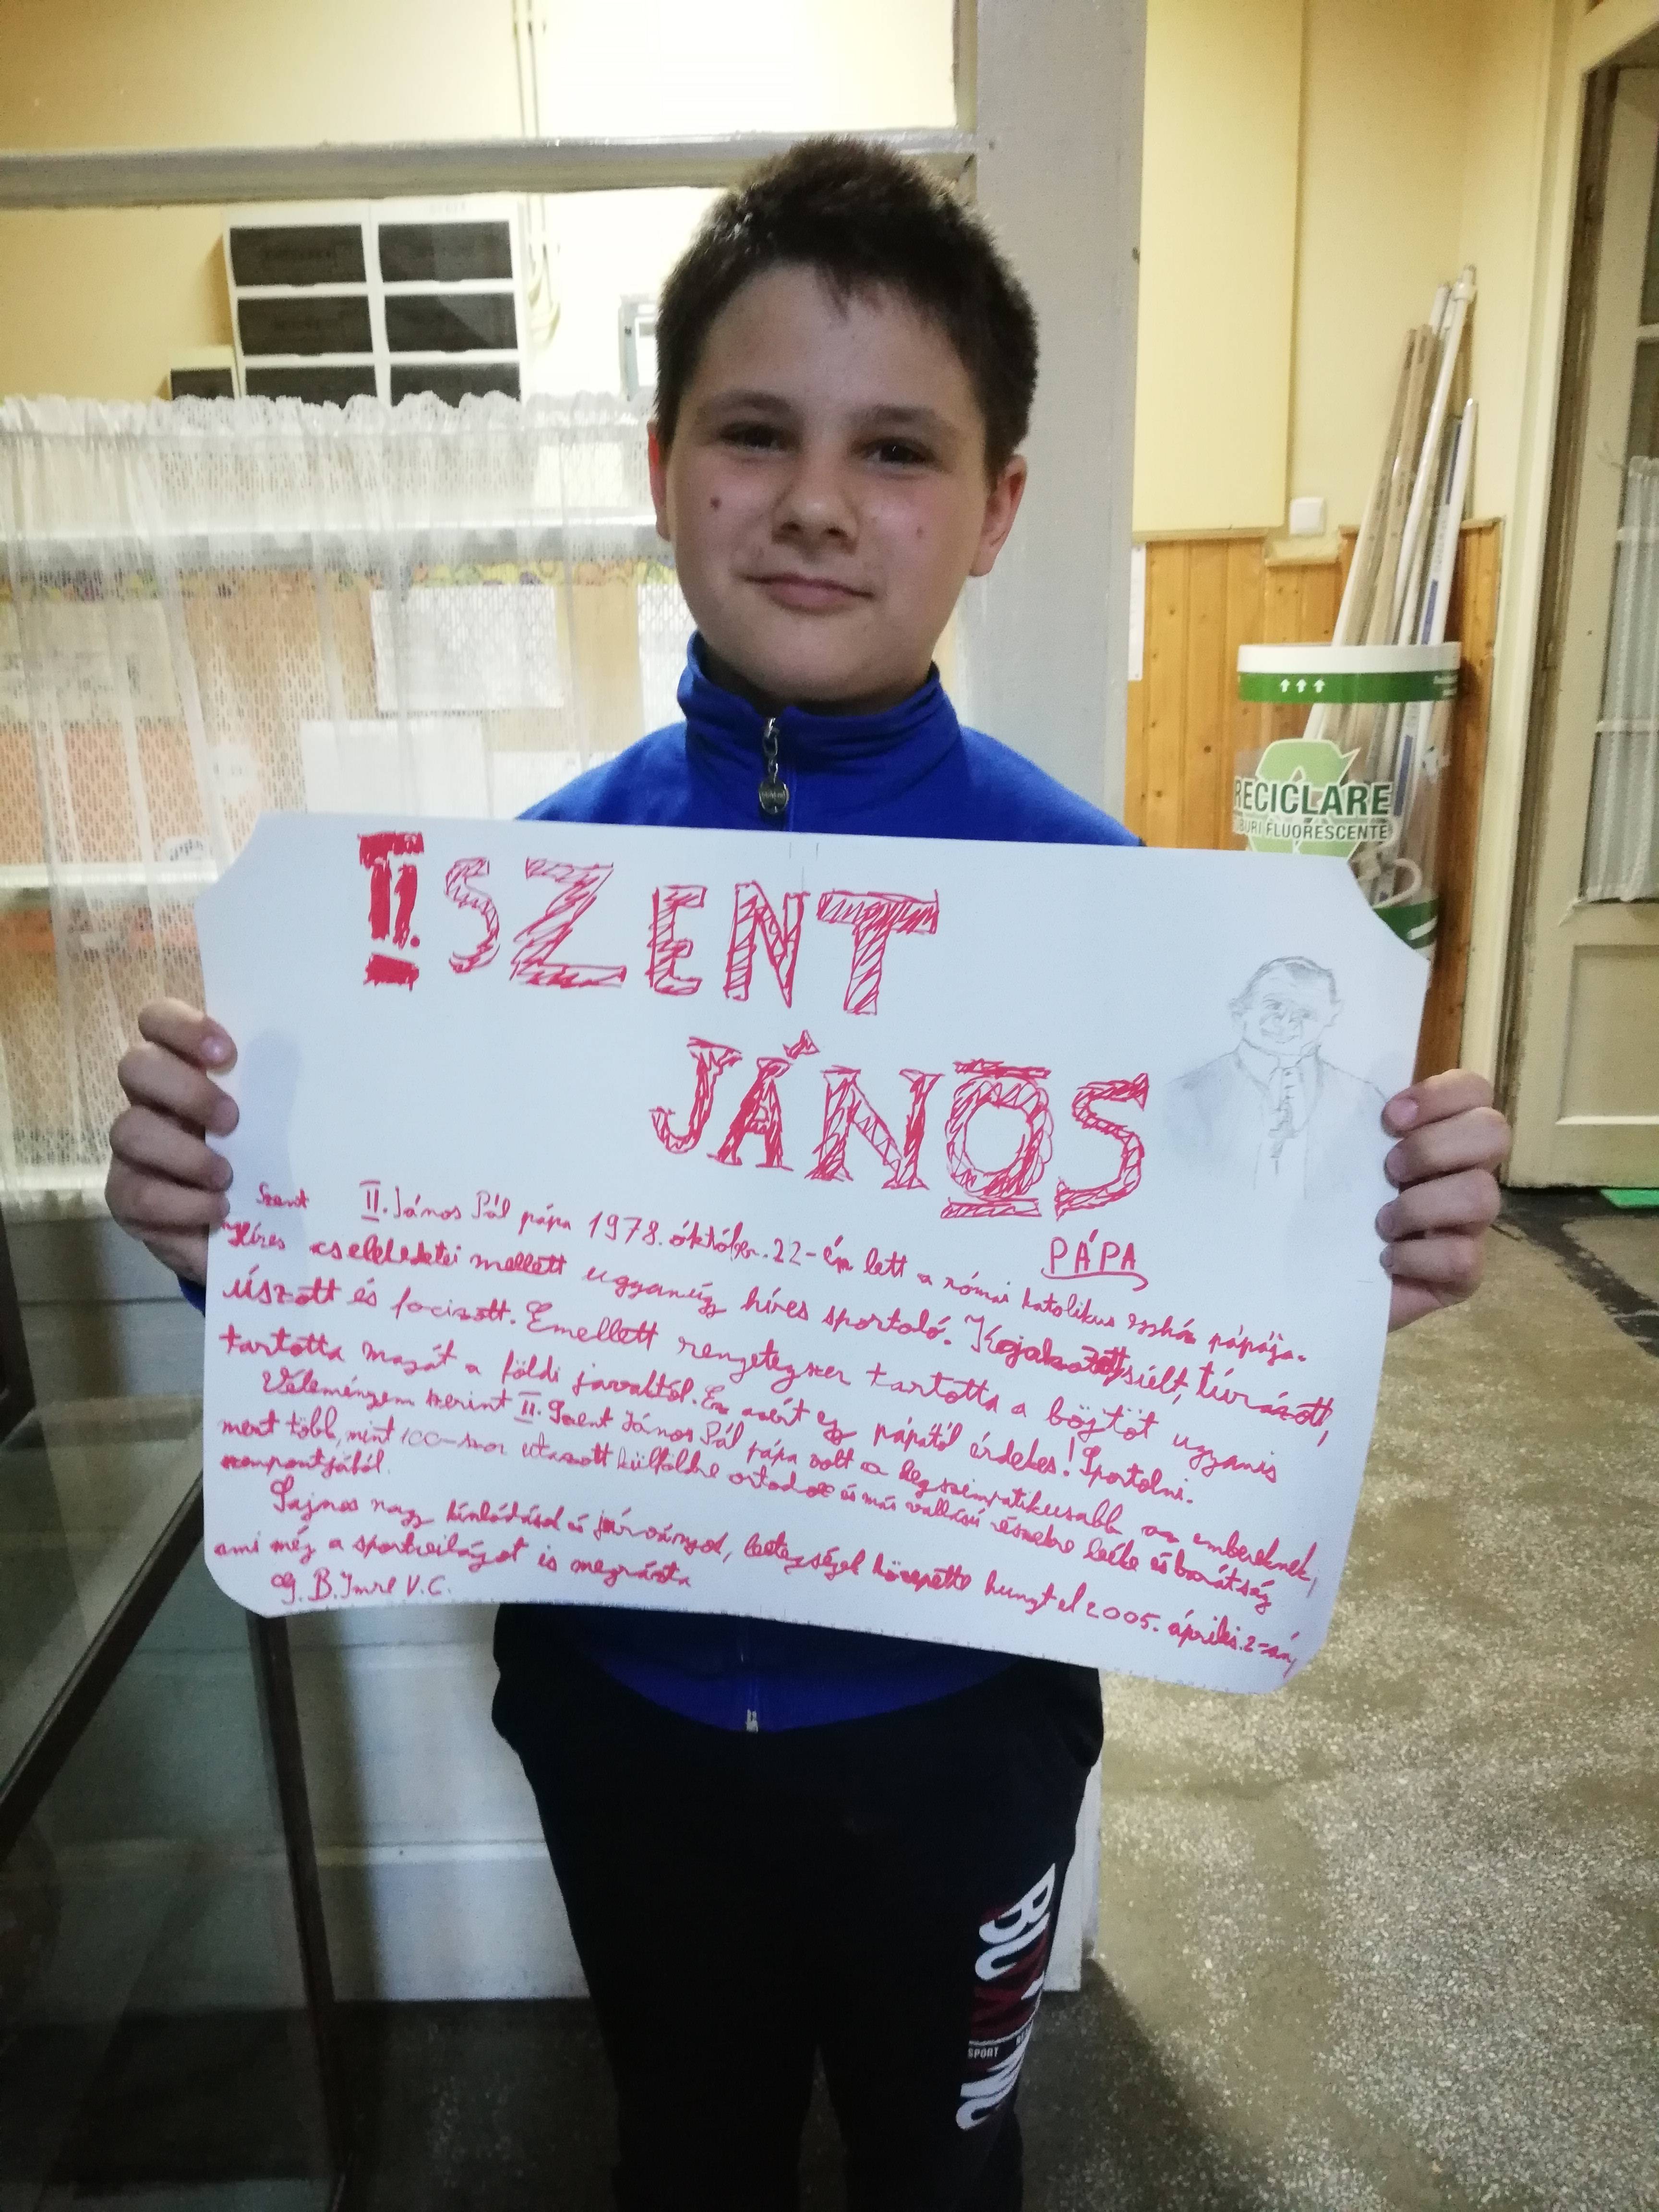 II. SZENT
JÁNOS
PÁPA
Szent II. János Pál pápa 1978. október. 22-én lett a római katolikus egyház pápája.
Híres cselekedetei mellett ugyanúgy híres sportoló. síelt, túrázott,
úszott és focizott. Emellett rengetegszer tartotta a böjtöt ugyanis
tartotta magát a földi javaktól. Ez azért egy pápától érdekes! Sportolni.
Véleményem szerint II. Szent János Pál pápa volt a legszimpatikusabb az embereknek,
mert több, mint 100-szor utazott külföldre ortodox és más vallású részekre béke és barátság
szempontjából.
Sajnos nagy kínlódások és járványok, betegségek közepette hunyt el 2005. április. 2-án,
ami még a sportvilágot is megrázta
G. B. Imre V. C.
RECICLARE
BURI FLUORESCENTE
SPORT